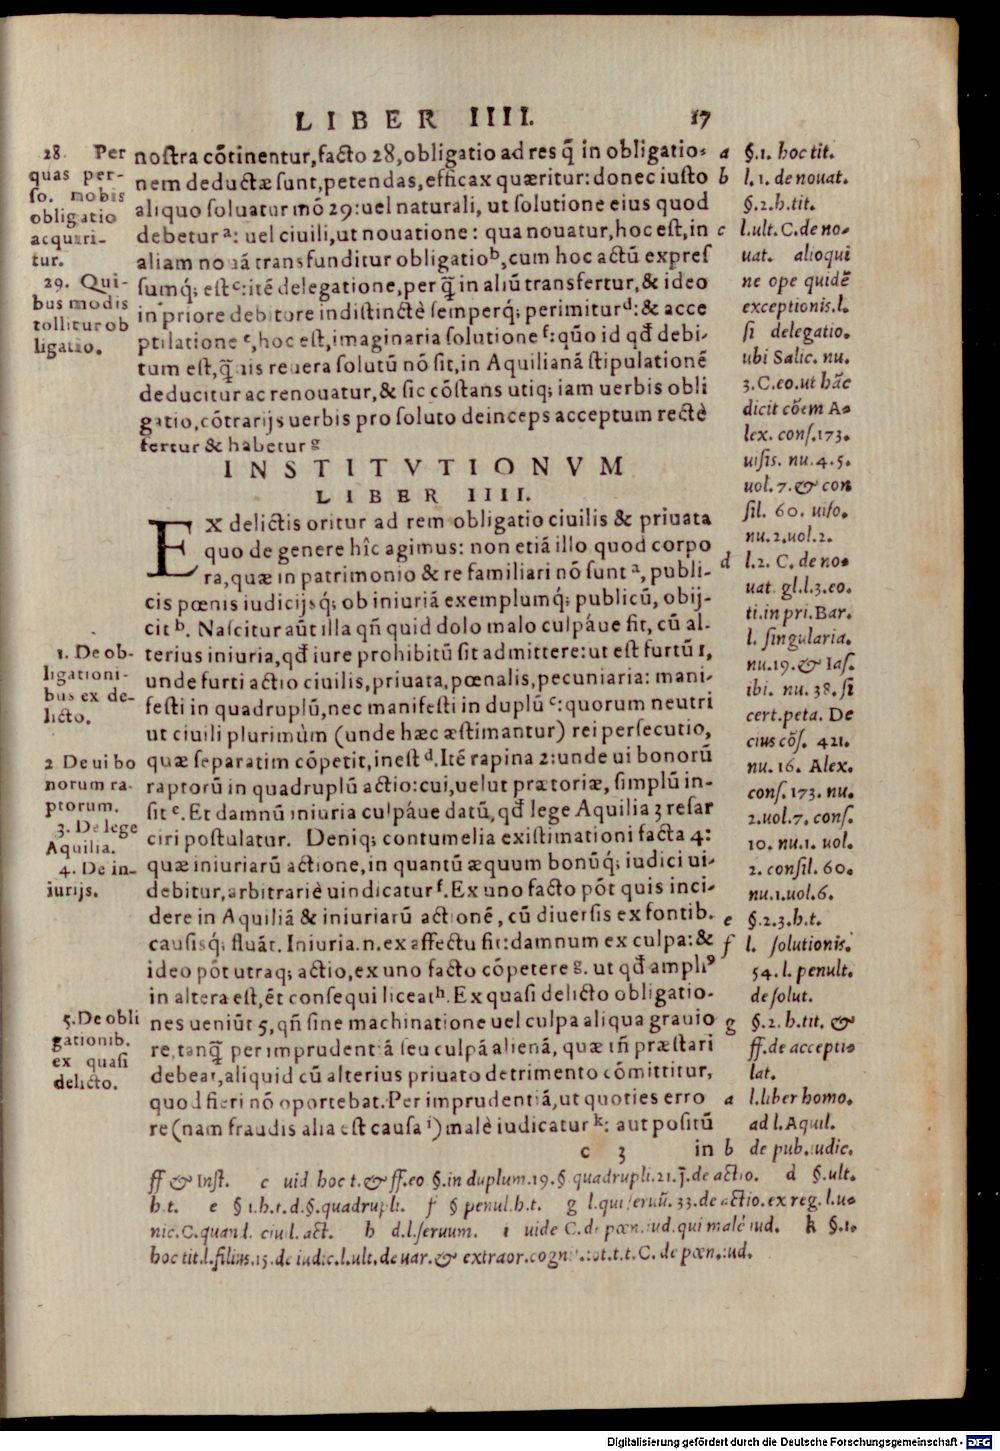 LIBER IIII. 17
28. Per
quas per-
so. nobis
obligatio
acquiri-
tur.
29. Qui-
bus modis
tollitur ob
ligatio.
noſtra cõtinentur, facto 28, obligatio ad res q̃ in obligatio-
nem deductæ ſunt, petendas, efficax quæritur: donec iuſto
aliquo ſoluatur mõ 29: uel naturali, ut ſolutione eius quod
debetur ᵃ: uel ciuili, ut nouatione: qua nouatur, hoc eſt, in
aliam nouã transfunditur obligatio ᵇ, cum hoc actũ expreſ
ſumq́; eſt ᶜ: itẽ delegatione, per q̃ in aliũ transfertur, & ideo
in priore debitore indiſtinctè ſemperq́; perimitur ᵈ: & acce
ptilatione ᵉ, hoc eſt, imaginaria ſolutione ᶠ: quõ id qđ debi-
tum eſt, q̃uis reuera ſolutũ nõ ſit, in Aquilianã ſtipulationẽ
deducitur ac renouatur, & ſic cõſtans utiq; iam uerbis obli
gatio, cõtrarijs uerbis pro ſoluto deinceps acceptum rectè
fertur & habetur ᵍ
INSTITVTIONVM
LIBER IIII.
EX delictis oritur ad rem obligatio ciuilis & priuata
quo de genere hîc agimus: non etiã illo quod corpo
ra, quæ in patrimonio & re familiari nõ ſunt ᵃ, publi-
cis pœnis iudicijsq́; ob iniuriã exemplumq́; publicũ, obij-
cit ᵇ. Naſcitur aũt illa qñ quid dolo malo culpáue fit, cũ al-
terius iniuria, qđ iure prohibitũ ſit admittere: ut eſt furtũ 1,
unde furti actio ciuilis, priuata, pœnalis, pecuniaria: mani-
feſti in quadruplũ, nec manifeſti in duplũ ᶜ: quorum neutri
ut ciuili plurimùm (unde hæc æſtimantur) rei perſecutio,
quæ ſeparatim cõpetit, ineſt ᵈ. Itẽ rapina 2: unde ui bonorũ
raptorũ in quadruplũ actio: cui, uelut prætoriæ, ſimplũ in-
ſit ᵉ. Et damnũ iniuria culpáue datũ, qđ lege Aquilia 3 reſar
ciri poſtulatur. Deniq; contumelia exiſtimationi facta 4:
quæ iniuriarũ actione, in quantũ æquum bonũq́; iudici ui-
debitur, arbitrariè uindicatur ᶠ. Ex uno facto põt quis inci-
dere in Aquiliã & iniuriarũ actionẽ, cũ diuerſis ex fontib.
cauſisq́; fluãt. Iniuria.n. ex affectu fit: damnum ex culpa: &
ideo põt utraq; actio, ex uno facto cõpetere ᵍ. ut qđ ampliꝰ
in altera eſt, ẽt conſequi liceat ʰ. Ex quaſi delicto obligatio-
nes ueniũt 5, qñ ſine machinatione uel culpa aliqua grauio
re, tanq̃ per imprudentiã ſeu culpã alienã, quæ iñ præſtari
debeat, aliquid cũ alterius priuato detrimento cõmittitur,
quod fieri nõ oportebat. Per imprudentiã, ut quoties erro
re (nam fraudis alia eſt cauſa ⁱ) malè iudicatur ᵏ: aut poſitũ
c 3 in
1. De ob-
ligationi-
bus ex de-
licto.
2 De ui bo
norum ra-
ptorum.
3. De lege
Aquilia.
4. De in-
iurijs.
5. De obli
gationib.
ex quaſi
delicto.
a §.1. hoc tit.
b l.1. de nouat.
§.2.h.tit.
c l.ult.C.de no-
uat. alioqui
ne ope quidẽ
exceptionis.l.
ſi delegatio.
ubi Salic. nu.
3.C.eo.ut hãc
dicit cõem A-
lex. conſ.173.
uiſis. nu.4.5.
uol.7.& con
ſil. 60. uiſo.
nu.2.uol.2.
d l.2. C. de no-
uat. gl.l.3.eo.
ti.in pri.Bar.
l. ſingularia.
nu.19.& Iaſ.
ibi. nu.38.ſi
cert.peta. De
cius cõſ. 421.
nu.16. Alex.
conſ.173.nu.
2.uol.7. conſ.
10. nu.1. uol.
2. conſil. 60.
nu.1.uol.6.
e §.2.3.h.t.
f l. ſolutionis.
54.l. penult.
de ſolut.
g §.2.h.tit. &
ff.de accepti-
lat.
a l.liber homo.
ad l.Aquil.
b de pub.iudic.
ff & Inſt. c uid hoc t.& ff.eo §.in duplum.19.§ quadrupli.21.j.de actio. d §.ult.
h.t. e § 1.h.t.d.§.quadrupli. f § penul.h.t. g l.qui ſeruũ.33.de actio.ex reg.l.u-
nic.C.quand. ciuil.act. h d.l.ſeruum. i uide C.de pœn.iud.qui malè iud. k §.1.
hoc tit.l.filius.15.de iudic.l.ult.de uar.& extraor.cogni. tot.t.t.C.de pœn.iud.
Digitalisierung gefördert durch die Deutsche Forschungsgemeinschaft - DFG